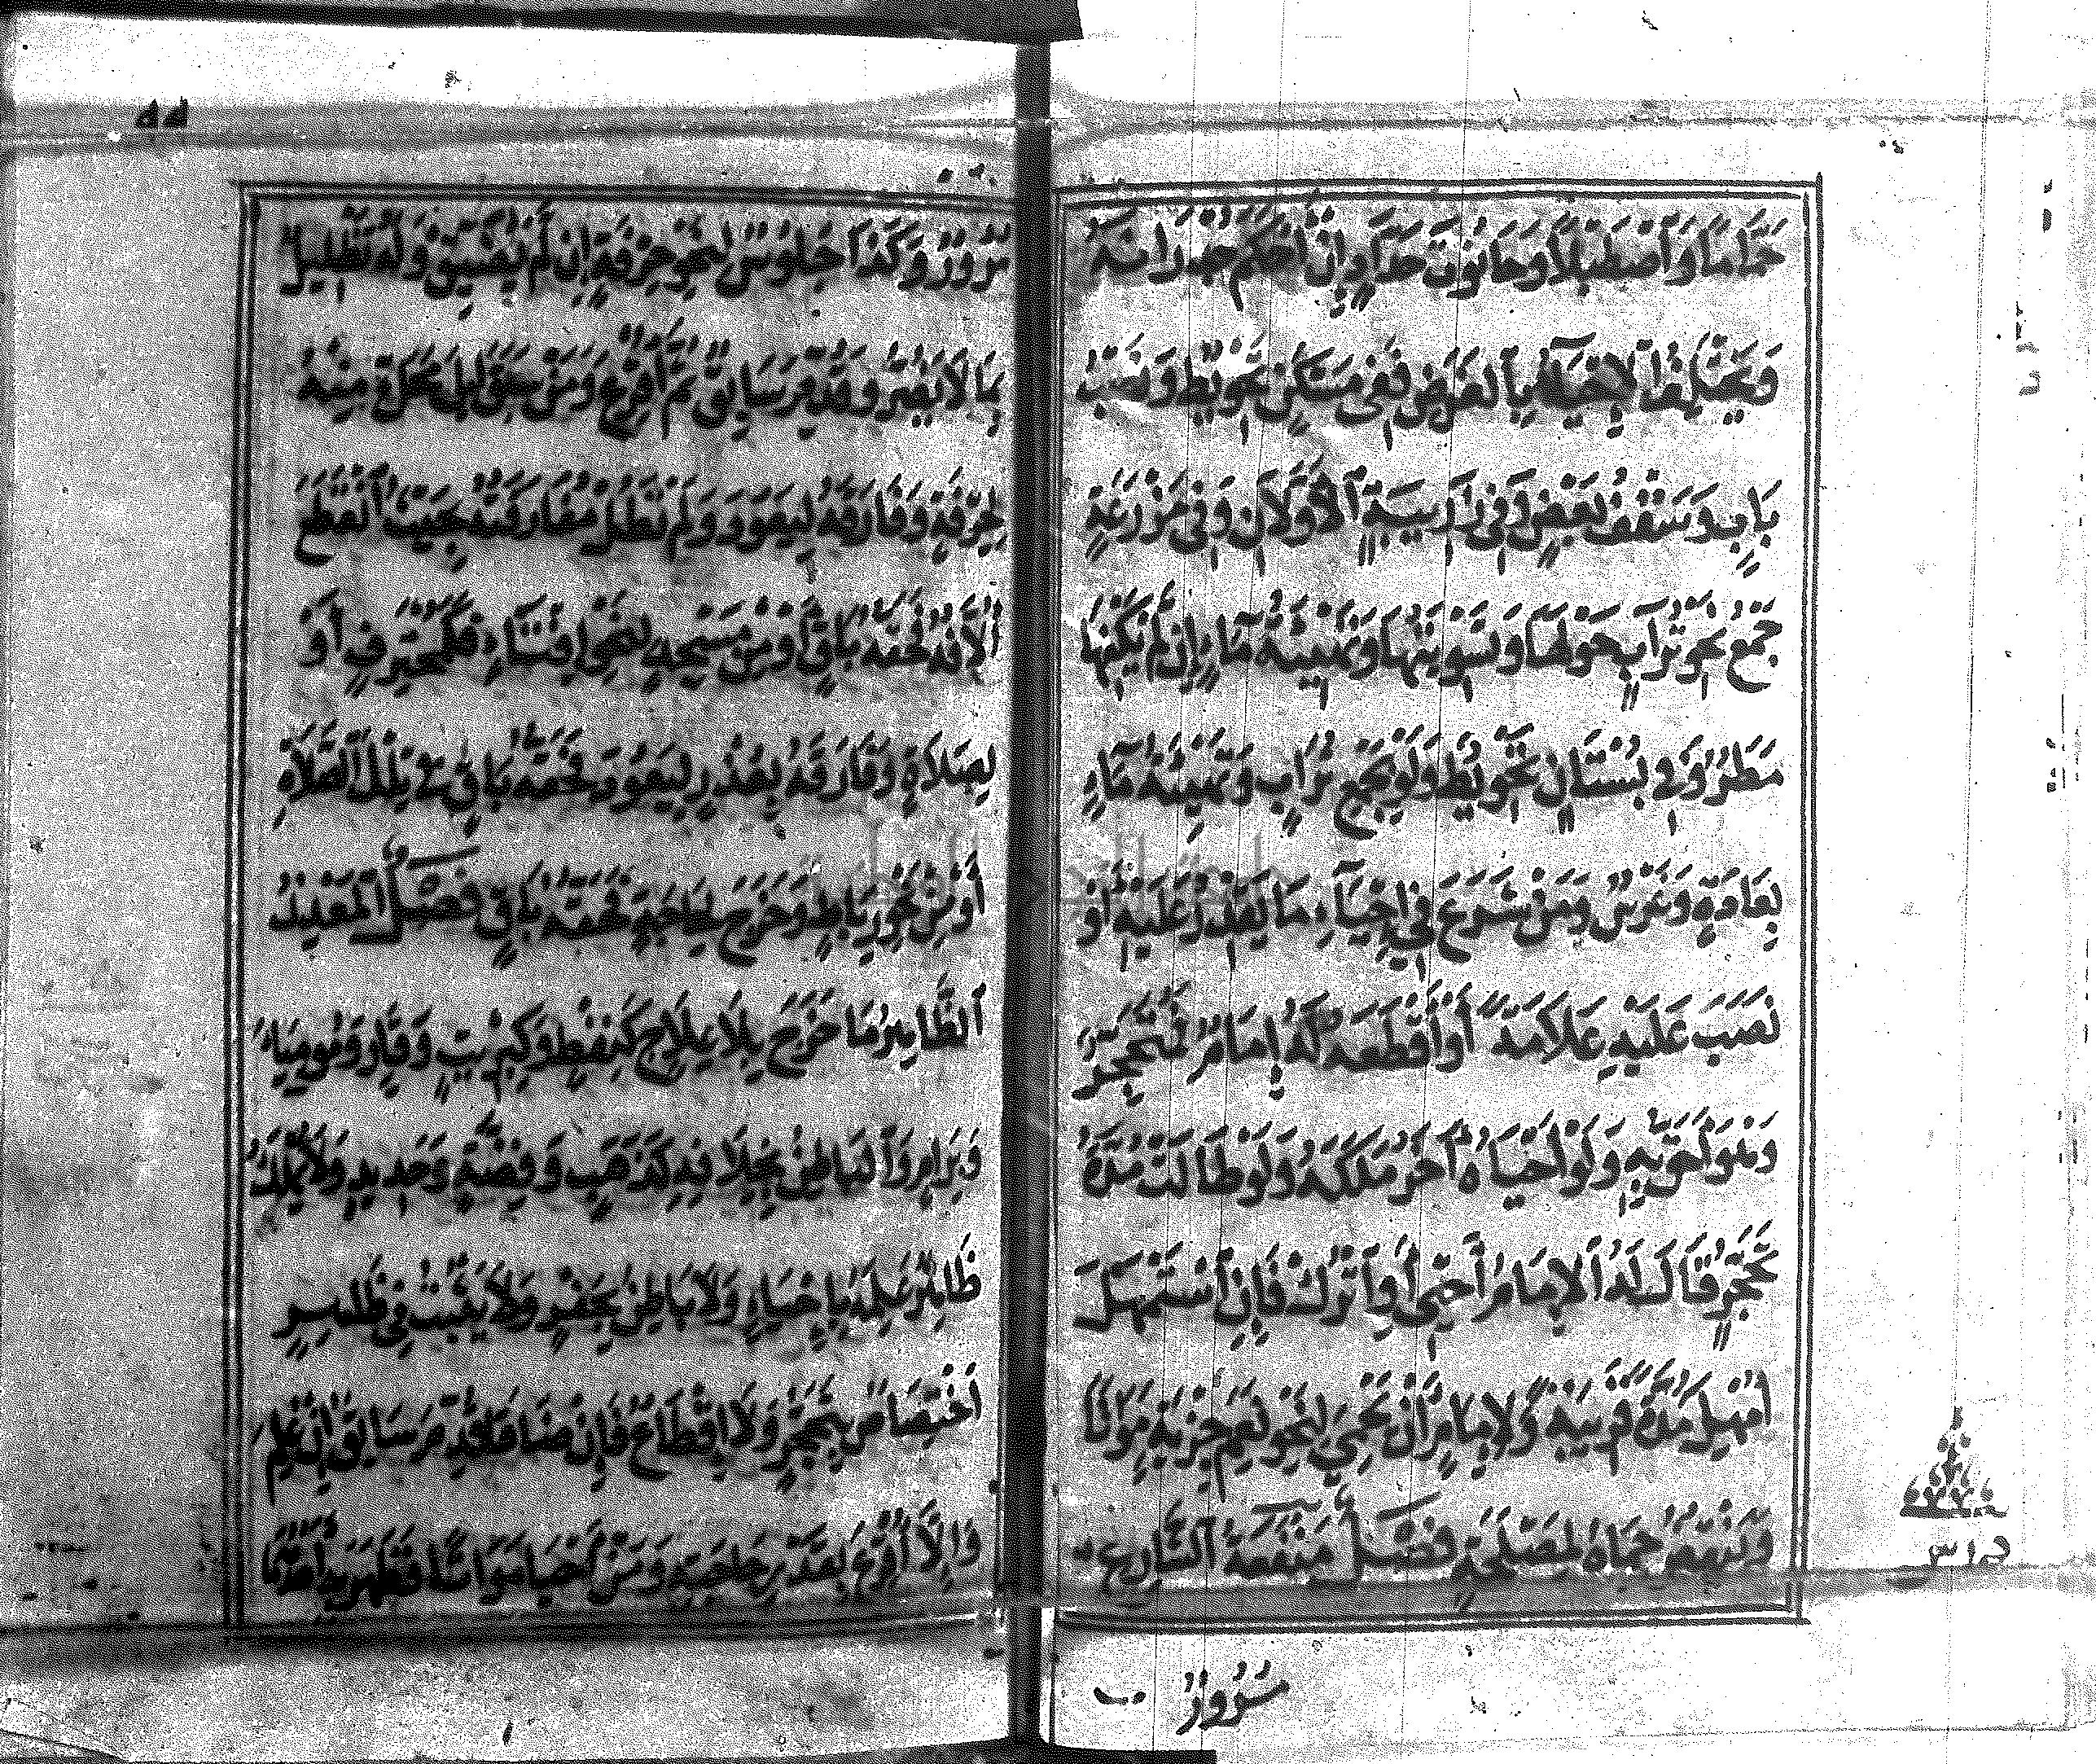 حَمَّامًا وَاَصْطَبْلًا وَحَانُوتَ حَدَّادٍ إِنْ أَحْكَمَ جُدْرَانَهُ
وَيَخْتَلِفُ الْإِحْيَآءُ بِالْغَرَضِ فَفِي مَسْكَنٍ تَحْوِيطٌ وَنَصْبُ
بَابٍ وَسَقْفُ بَعْضٍ وَفِي زَرِيبَةٍ الْأَوَّلَانِ وَفِي مَزْرَعَةٍ
جَمْعُ نَحْوِ تُرَابٍ حَوْلَهَا وَتَسْوِيَتُهَا وَتَهْيِئَةُ مَآءٍ إِنْ لَمْ يَكْفِهَا
مَطَرٌ وَفِي بُسْتَانٍ تَحْوِيطٌ وَلَوْ بِجَمْعِ تُرَابٍ وَتَهْيِئَةُ مَآءٍ
بِعَادَةٍ وَغَرْسٌ وَمَنْ شَرَعَ فِي إِحْيَآءِ مَا يَقْدِرُ عَلَيْهِ أَوْ
نَصَبَ عَلَيْهِ عَلَامَةً أَوْ أَقْطَعَهُ لَهُ إِمَامٌ فَمُتَحَجِّرٌ
وَهُوَ أَحَقُّ بِهِ وَلَوْ أَحْيَاهُ آخَرُ مَلَكَهُ وَلَوْ طَالَتْ مُدَّةُ
تَحَجُّرٍ قَالَ لَهُ الْإِمَامُ أَحْيِ أَوِ اتْرُكْ فَإِنِ اسْتَمْهَلَ
أُمْهِلَ مُدَّةً قَرِيبَةً وَلِإِمَامٍ أَنْ يَحْمِيَ لِنَحْوِ نَعَمِ جِزْيَةٍ مَوَاتًا
وَيَنْقُضُ حِمَاهُ لِمَصْلَحَةٍ فَصْلٌ مَنْفَعَةُ الشَّارِعِ
مُرُورٌ
مُرُورٌ وَكَذَا جُلُوسٌ لِنَحْوِ حِرْفَةٍ إِنْ لَمْ يُضَيِّقْ وَلَهُ تَظْلِيلٌ
بِمَا لَا يَضُرُّ وَقُدِّمَ سَابِقٌ ثُمَّ أُقْرِعَ وَمَنْ سَبَقَ إِلَى مَحَلٍّ مِنْهُ
لِحِرْفَةٍ وَفَارَقَهُ لِيَعُودَ وَلَمْ تَطُلْ مُفَارَقَتُهُ بِحَيْثُ انْقَطَعَ
أُلَّافُهُ فَحَقُّهُ بَاقٍ أَوْ مِنْ مَسْجِدٍ لِنَحْوِ إِفْتَاءٍ فَكَمُحْتَرِفٍ أَوْ
لِصَلَاةٍ وَفَارَقَهُ بِعُذْرٍ لِيَعُودَ فَحَقُّهُ بَاقٍ فِي تِلْكَ الصَّلَاةِ
أَوْ مِنْ نَحْوِ رِبَاطٍ وَخَرَجَ لِحَاجَةٍ فَحَقُّهُ بَاقٍ فَصْلٌ الْمَعْدِنُ
الظَّاهِرُ مَا خَرَجَ بِلَا عِلَاجٍ كَنِفْطٍ وَكِبْرِيتٍ وَقَارٍ وَمُومِيَاءَ
وَبِرَامٍ وَالْبَاطِنُ بِخِلَافِهِ كَذَهَبٍ وَفِضَّةٍ وَحَدِيدٍ وَلَا يُمْلَكُ
ظَاهِرٌ عَلِمَهُ بِإِحْيَاءٍ وَلَا بَاطِنٌ بِحَفْرٍ وَلَا يَثْبُتُ فِي ظَاهِرٍ
اخْتِصَاصٌ بِتَحَجُّرٍ وَلَا إِقْطَاعٌ فَإِنْ ضَاقَا قُدِّمَ سَابِقٌ إِنْ عُلِمَ
وَإِلَّا أُقْرِعَ بِقَدْرِ حَاجَتِهِ وَمَنْ أَحْيَا مَوَاتًا فَظَهَرَ بِهِ أَحَدُهُمَا